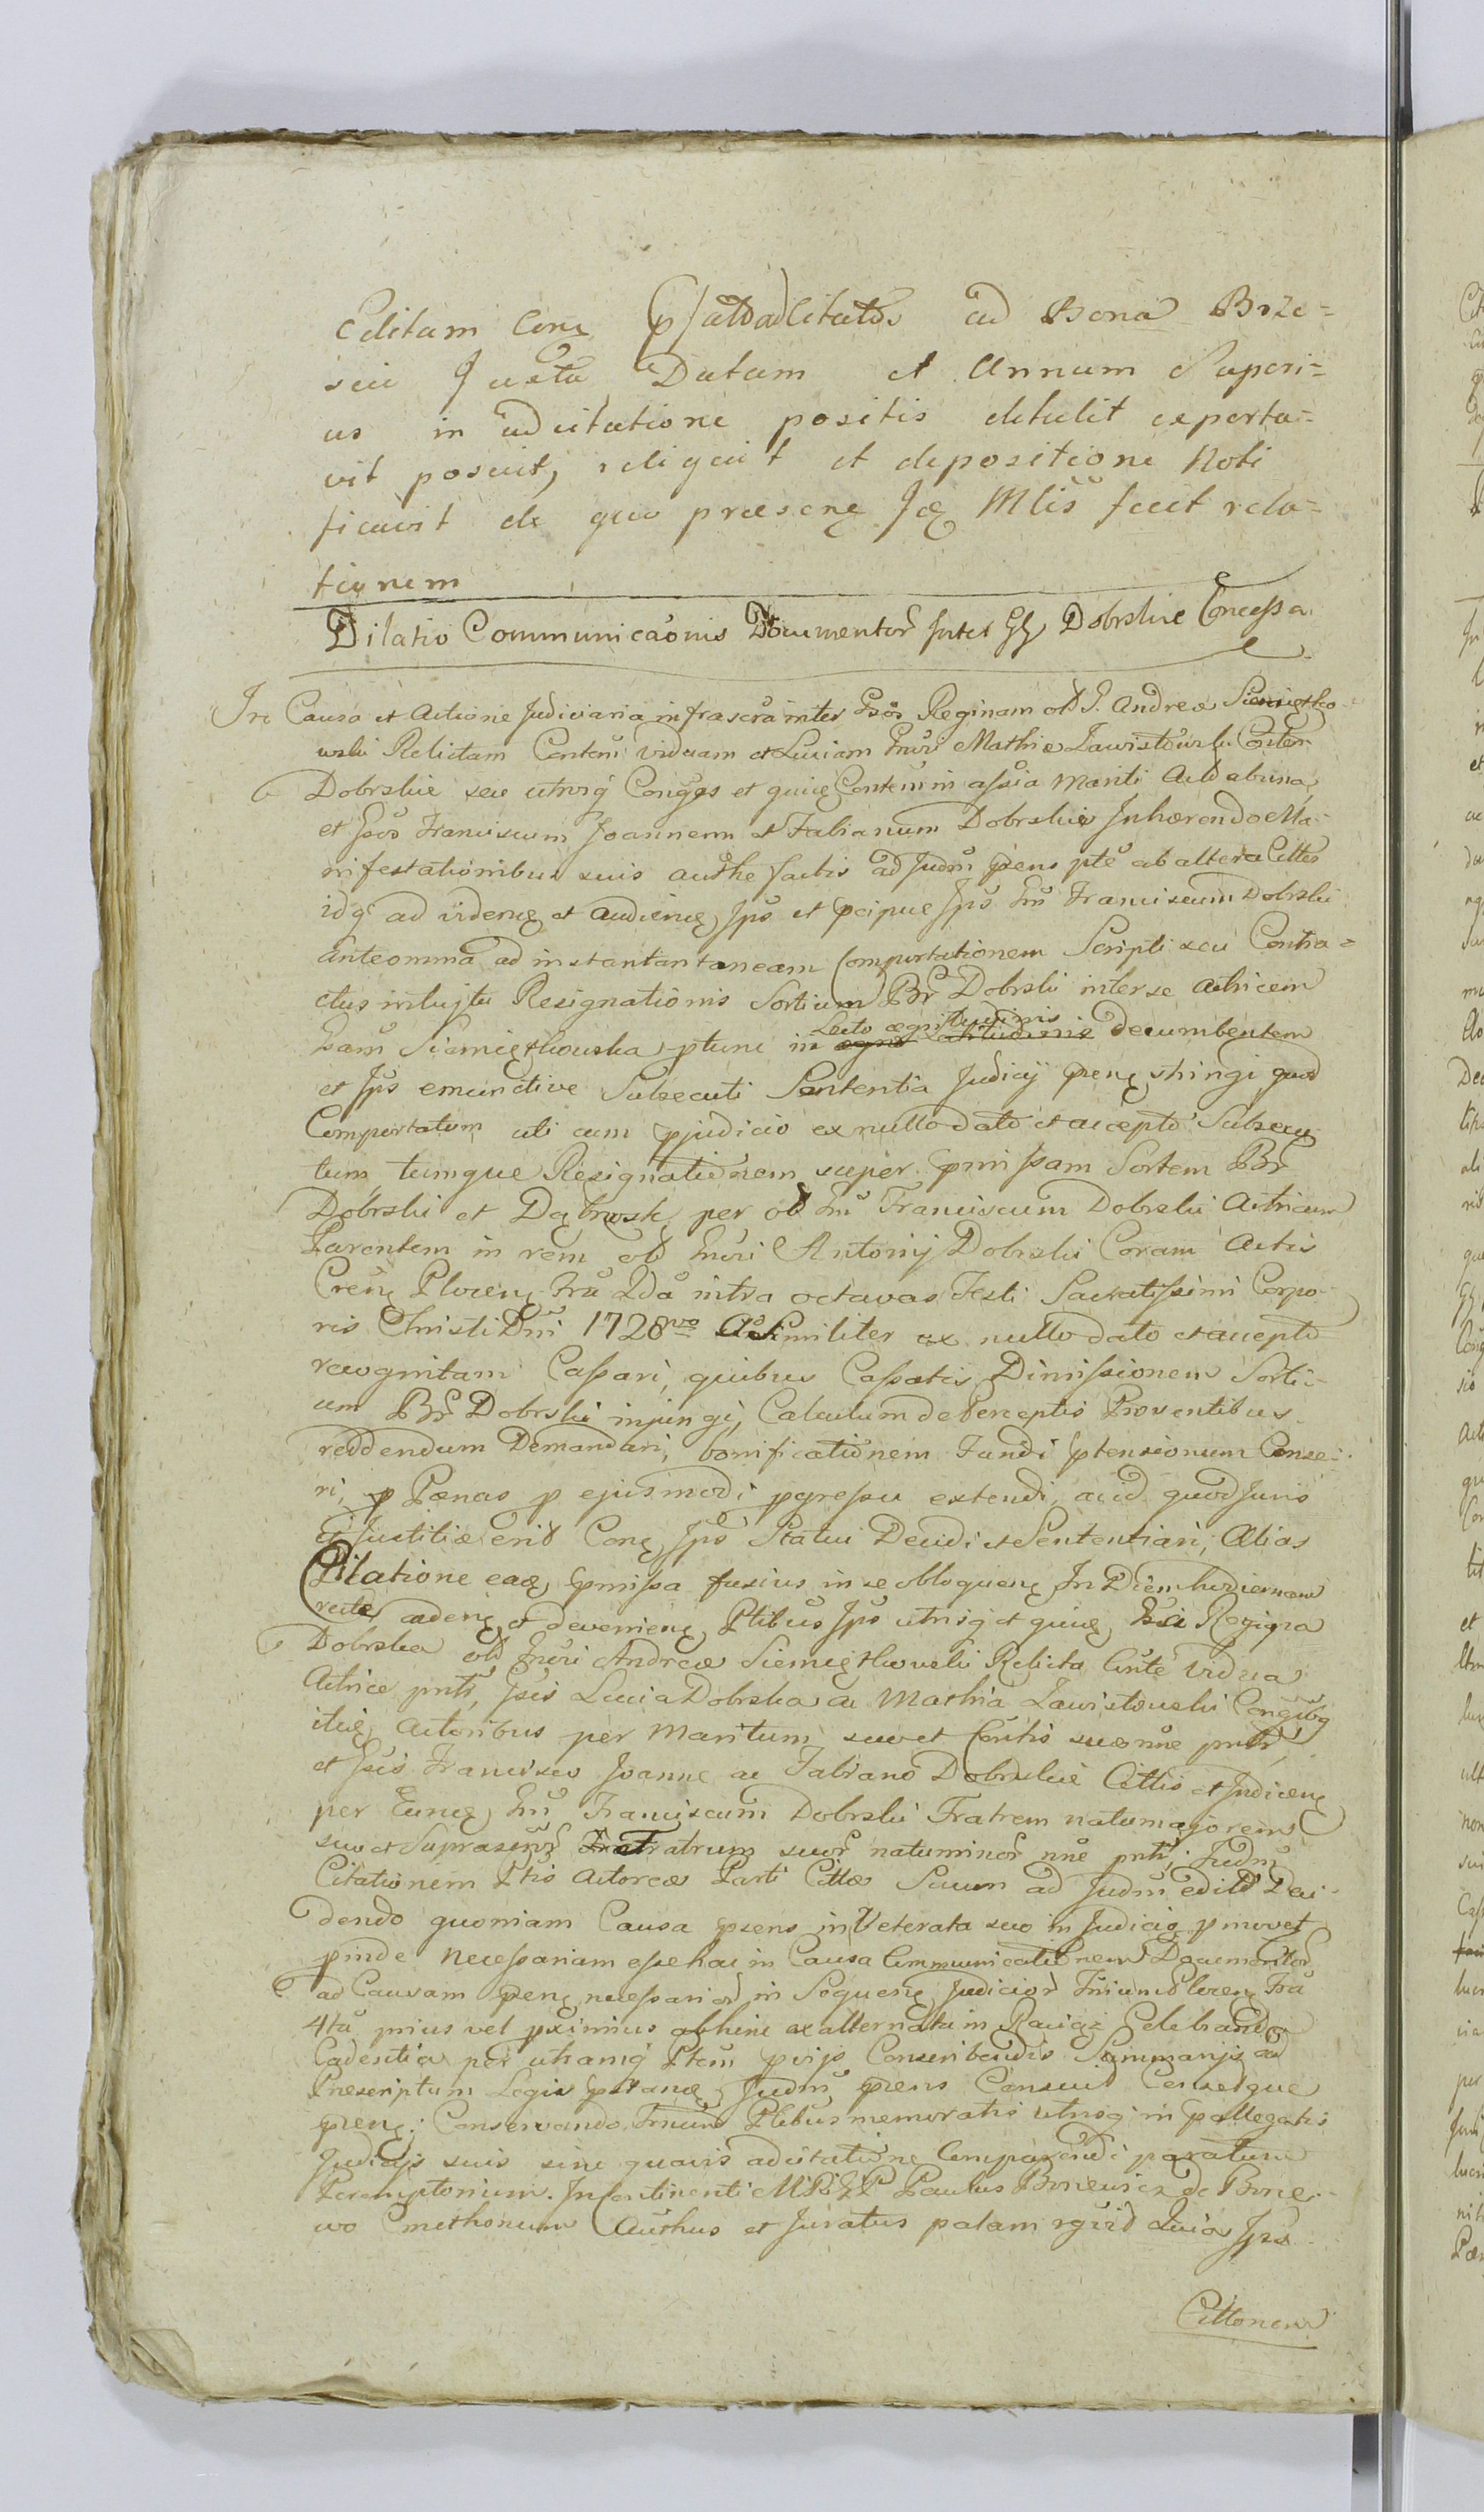 Editam Conę (p) attō adcitatōs ad Bona Brze=
scie Juxta Datam et Annum Superi=
us in adcitatione positis detulit exporta=
vit posuit, reliquit et depositione Noti
ficavit de quo præsenę Jcę Mlis fecit rela=
tionem
Dilatio Communicaōnis Documentor Inter GG Dobrskie Concessa
In Causa et Actione Judiciaria infrascra inter Gsōs Reginam olb G. Andreæ Siemiętko
wski Relictam Contem viduam et Luciam Gnri Mathiæ Zawistowski Conster
Dobrskie seu utrosq Conggs et quięe Contem in assia Mariti Actd abuna
et Gsos Franciscum Joannem et Fabianum Dobrskie Inhærendo Ma-
nifestationibus suis authe factis ad Judm præns pte ab altera Cittes
idq ad videnę et audienę Jps et præcipue Jps Gn Franciscum Dobrski
anteomnia ad instantantaneam Comportationem Scripti seu Contra=
ctus intuitu Resignationis Sortium Br Dobrski inter se Actricem
Gsam Siemiętkowska ptunc in Lecto ægritudinis decumbentem
et Jps emunctive Subsecuti Sententia Judicij præsnę stringi quod
Comportatum uti cum præjudicio ex nullo dato et accepto Subsecu
tum, tumque Resignationem super præmissam Sortem Br
Dobrski et Dąbrwsk per olb Gn Franciscum Dobrski Actricum
Parentem in rem olb Gnri Antonij Dobrski Coram Actis
Crenę Plocenę Fra 2da intra octavas Festi Sacratissimi Corpo-
ris Christi Dni 1728vo Similiter ex nullo dato et accepto
recognitam Cassari, quibus Cassatis Dimissionem Sorti-
um Br Dobrski injungi, Calculum de Perceptis Proventibus
reddendum Demandari, bonificationem Fundi prætensionum Conse-
ri, p Pænas p ejusmodi pgressu extendi, ac id quod Juris
et Justitiæ erit Conę Jps Statui Decidi et Sententiari, Alias
Citatione eaę præmissa fusius in se obloquenę In Diem hodiernam
recte cadenę et devenienę Ptibus Jps utrisq et quięe Gsa Regina
Dobrska olb Gnri Andreæ Siemiętkowski Relicta Cnte vidua
Actrice pntr, Gsis Lucia Dobrska ac Mathia Zawistowski Conggibg
itię Actoribus per Maritum suo et Contis suæ nne pntr,
et Gsis Francisco Joanne ac Fabiano Dobrskie Cittis et Judicenę
per Eunę Gn Franciscum Dobrski Fratrem natumajorem
suo et Suprascripr Fratrum suor natuminor nne pntr; Judm
Citationem Ptis Actoreæ Parti Cittæ Suum ad Judm editd Deci-
dendo quoniam Causa præsens inveterata suo in Judicio pmovet
pinde necessariam esse hac in Causa Communicationem Documentor
ad Causam præsenę necessarior in Sequenę Judicior Trium Plocenę Fra
4ta prius vel pximius abhinc ex alternata in Raciąż Celebranda
Cadentia per utramq Ptem pvijs Conscribendis Summarijs ad
Præscriptum Legis pstanę Judm præns Censuit Censetque
præsnę: Conservando Trmum Ptibus memoratis utrisq in pallegatis
Judicijs suis sine quavis adcitatione Comparendi paratum
Peremptorium. In continenti MPiGP Paulus Boniewicz de Bonie-
wo Cmethonum Authus et Juratus palam rgvid Quia Jpse
Cittonem